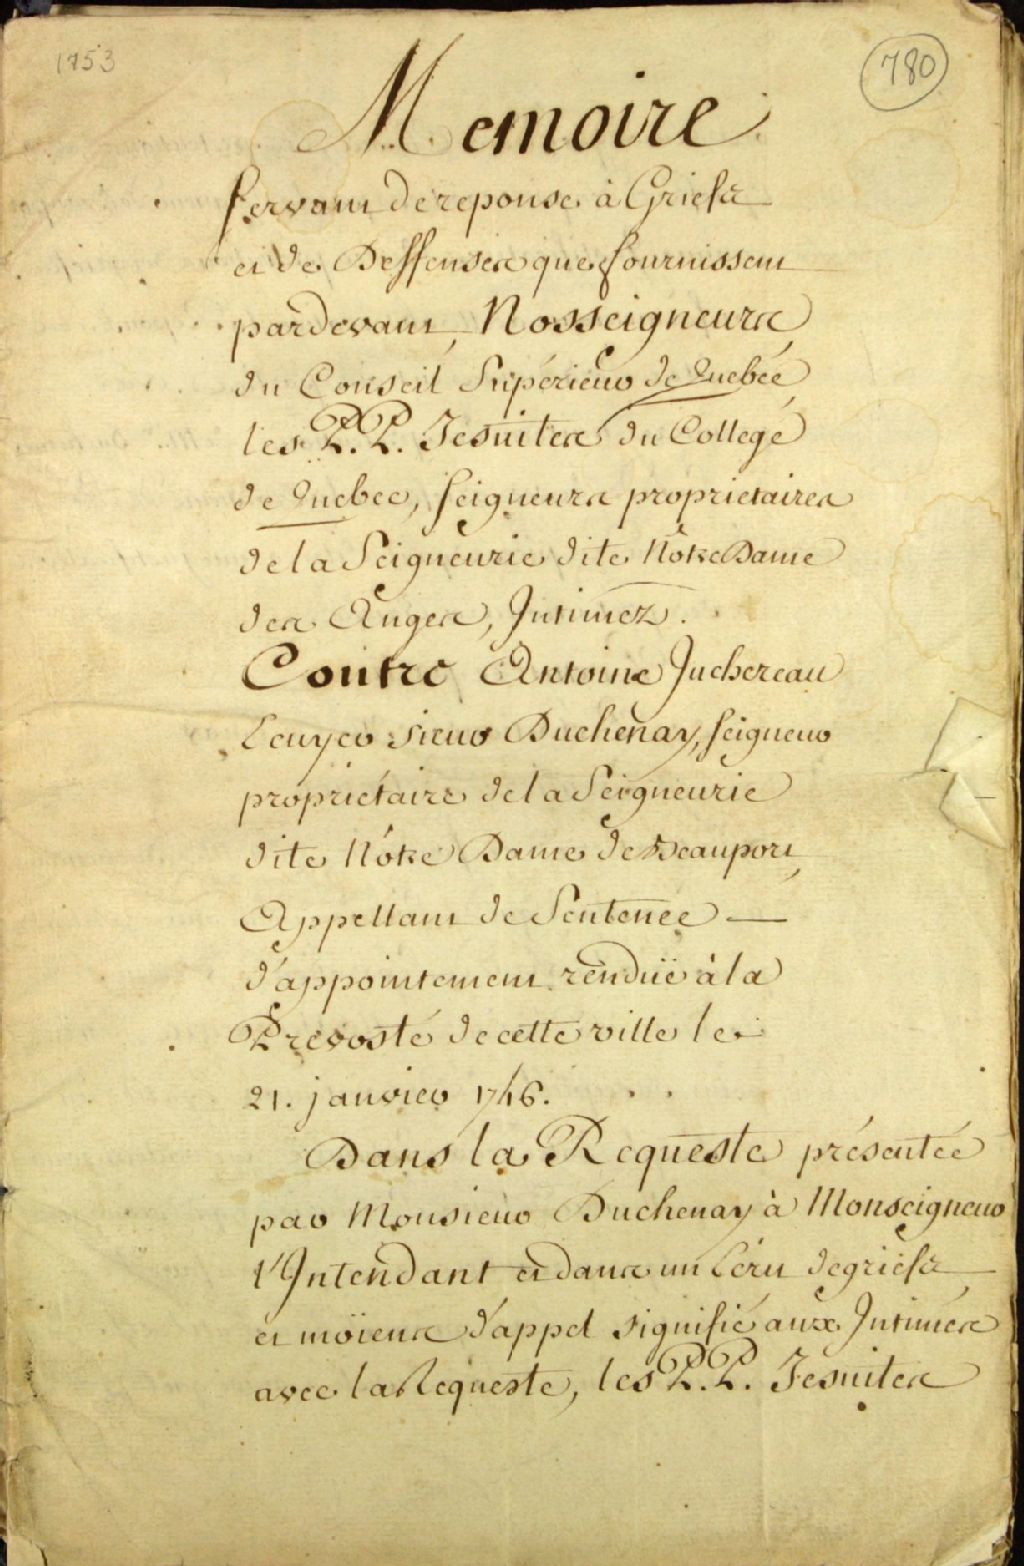 1753
780
Memoire
servant de reponse à Griefs
et de Deffenses que fournissent
pardevant, Nosseigneurs
du Conseil Supérieur de Quebéc
les P.P. Jesuites du College
de Quebec, seigneurs proprietaires
de la Seigneurie dite Nôtre Dame
des Anges, Intimez.
Contre Antoine Juchereau
Ecuyer sieur Duchenay, seigneur
propriétaire de la Seigneurie
dite Nôtre Dame de Beauport,
Appellant de Sentence —
d'appointement renduë à la
Prevosté de cette ville le
21. janvier 1746.
Dans la Requeste présentée
par Monsieur Duchenay à Monseigneur
l'Intendant et dans un Ecrit de griefs
et moïens d'appel signifié aux Intimés
avec la Requeste, les P.P. Jesuites